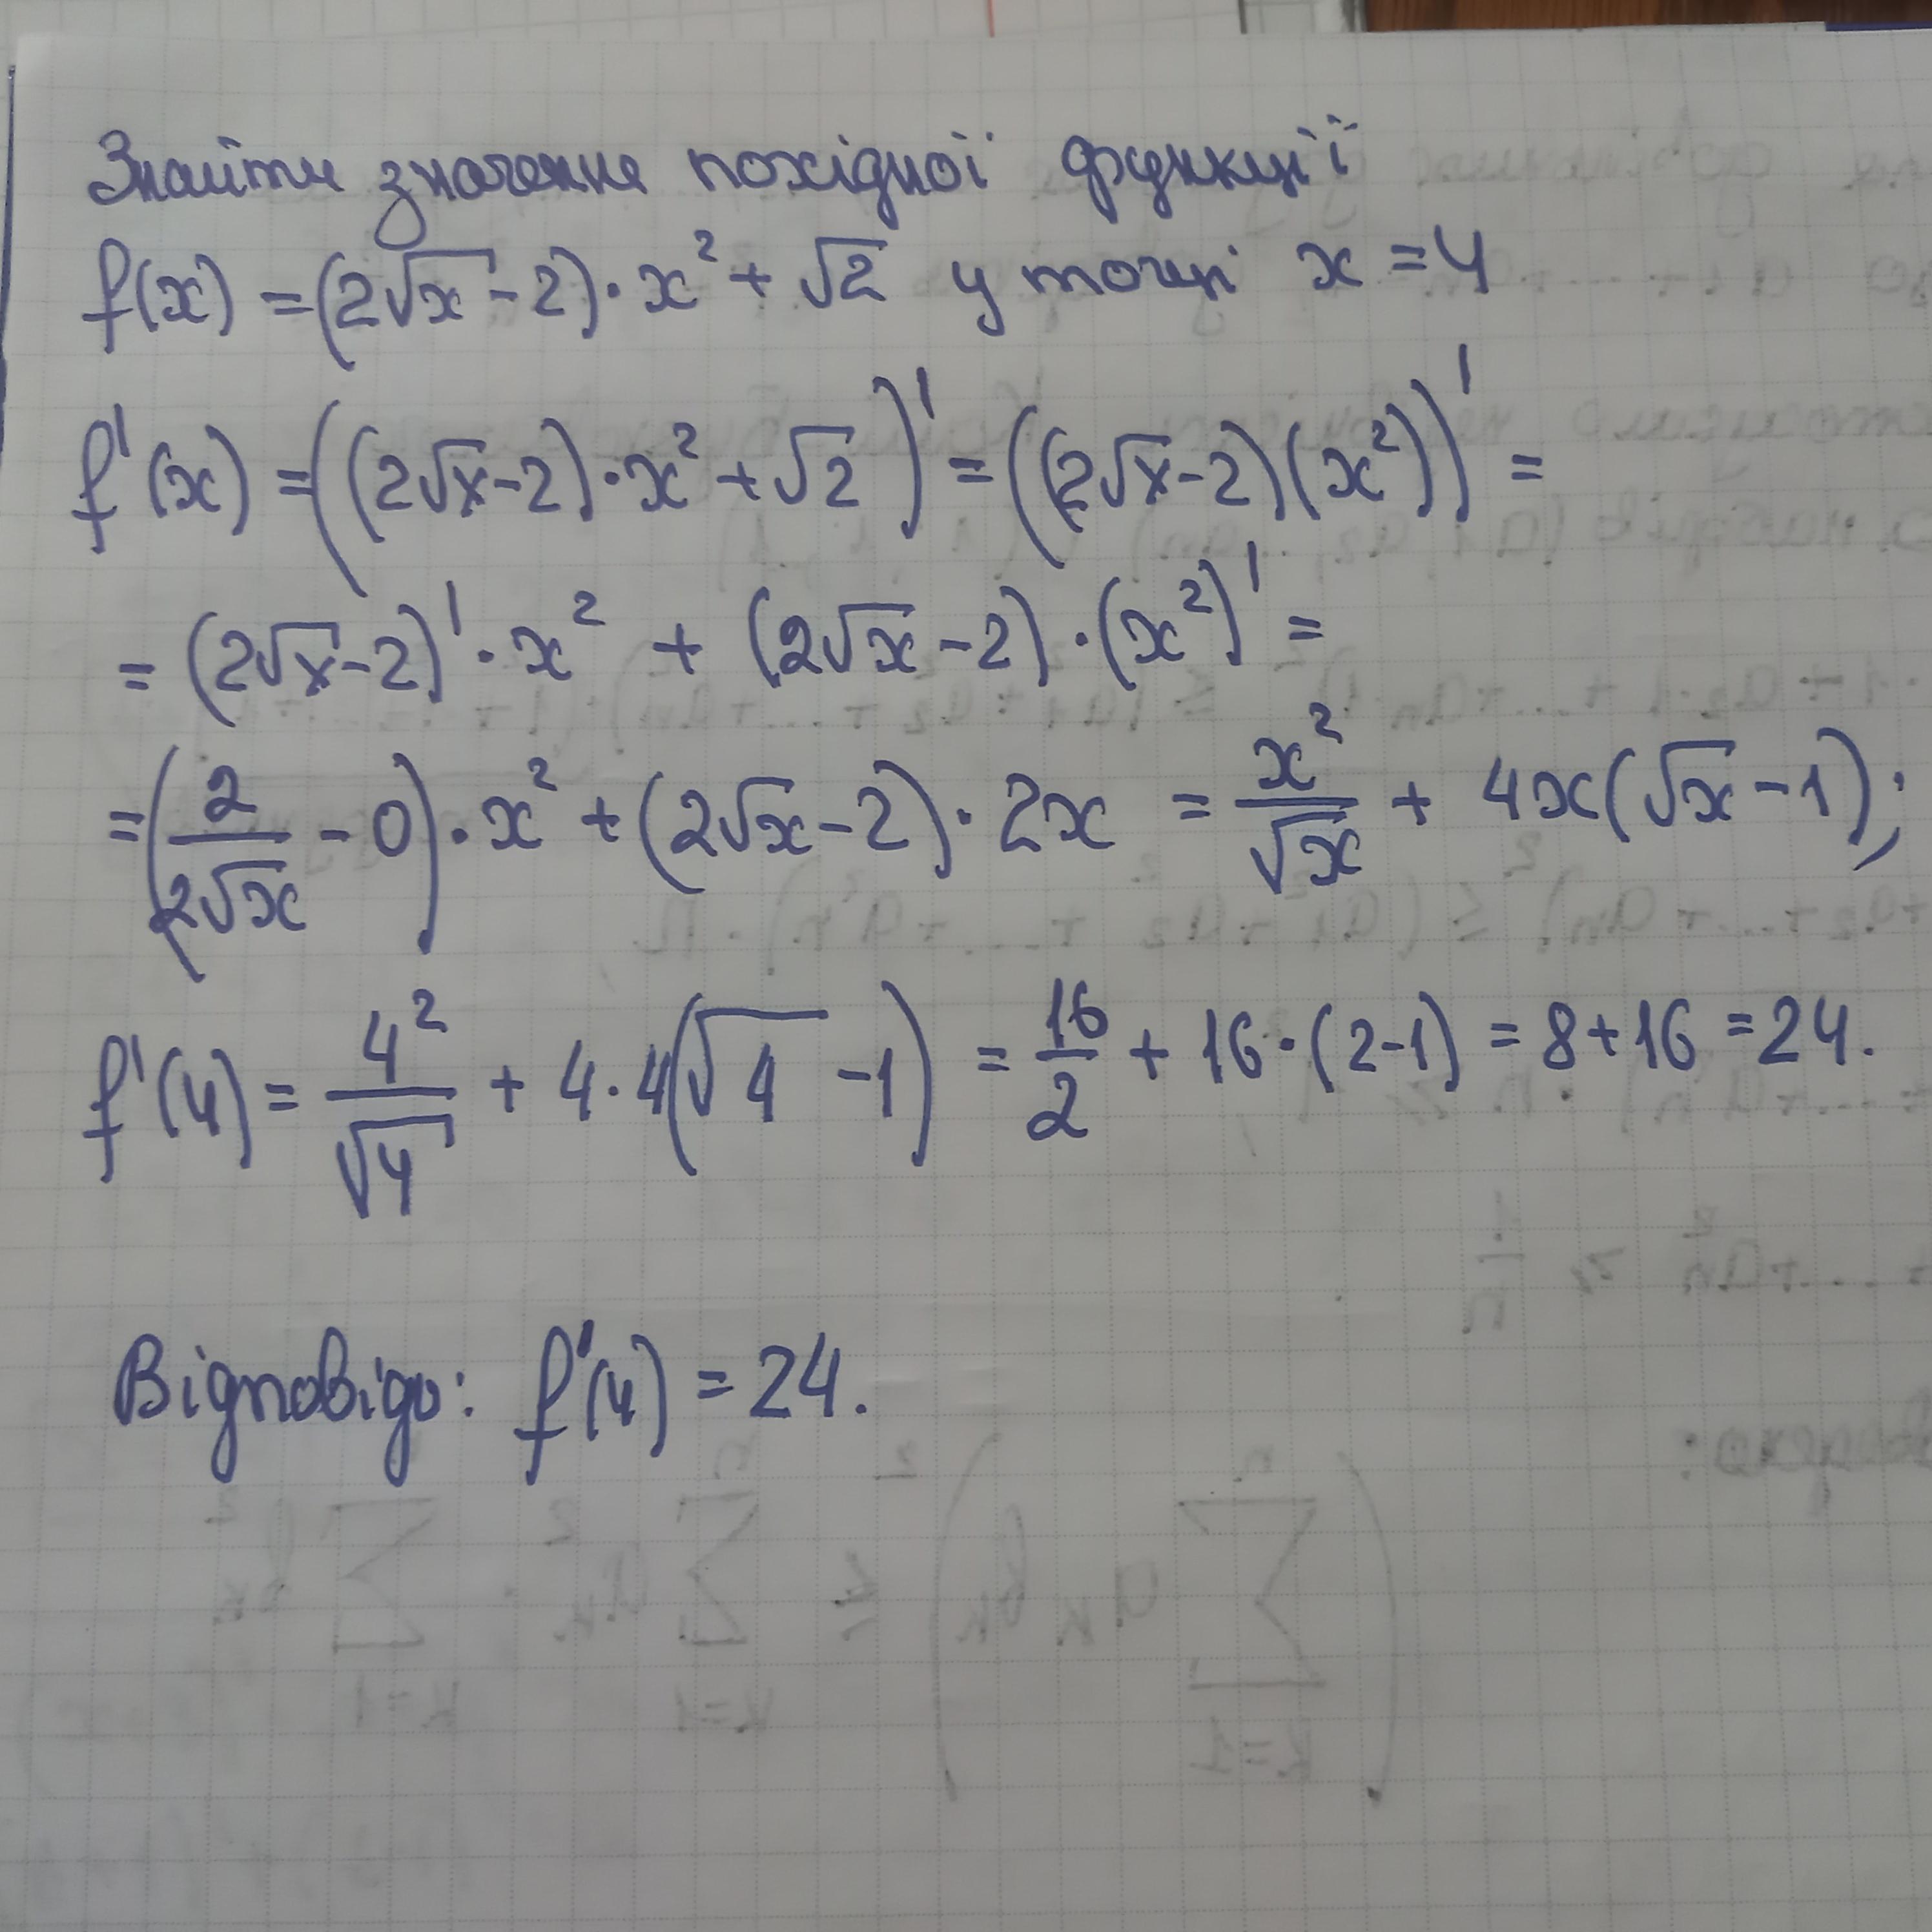 Знайти значення похідної функції
f(x) = (2√x - 2) · x² + √2 у точці x = 4
f'(x) = ((2√x - 2) · x² + √2)' = ((2√x - 2)(x²))' =
= (2√x - 2)' · x² + (2√x - 2) · (x²)' =
= (2/(2√x) - 0) · x² + (2√x - 2) · 2x = x²/√x + 4x(√x - 1);
f'(4) = 4²/√4 + 4·4(√4 - 1) = 16/2 + 16·(2-1) = 8+16 = 24.
Відповідь: f'(4) = 24.